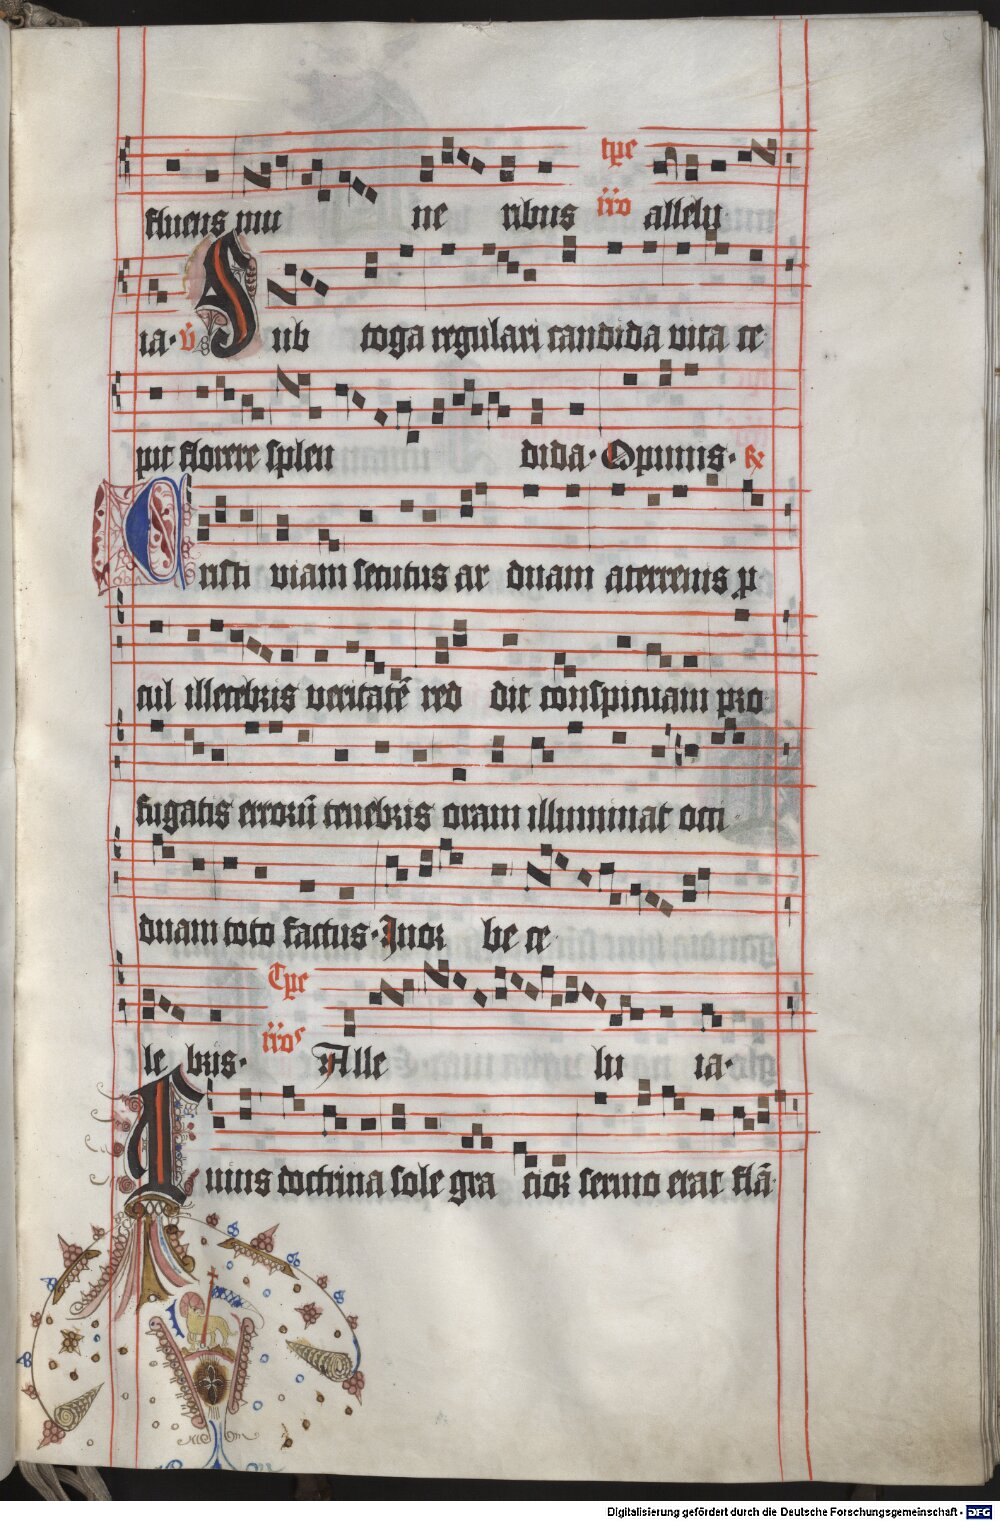 fluens mu ne ribus tpe iiꝛo allelu
ia · v̄ Sub toga regulari candida vita ce
pit florere splen dida · Opimis · ℟
Cristi viam secutus ar duam aterrenis ꝓ
cul illecebris veritatē red dit conspicuam pro
fugatis erroꝛū tenebris oram illuminat occi
duam toto factus · Inoꝛ be ce
le bris · Tpe Alle lu ia ·
uius doctrina sole gra cioꝛ sermo erat flā
Digitalisierung gefördert durch die Deutsche Forschungsgemeinschaft - DFG